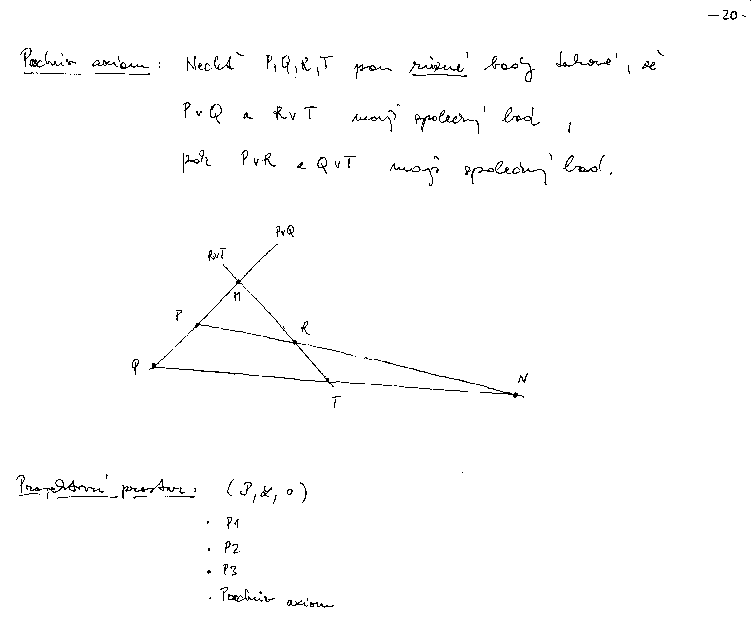 -20-
Paschův axiom: Nechť P,Q,R,T jsou různé body takové, že
P∨Q a R∨T mají společný bod,
pak P∨R a Q∨T mají společný bod.
P∨Q
R∨T
M
P
R
Q
T
N
Projektivní prostor: (P, L, ∘)
· P1
· P2
· P3
· Paschův axiom